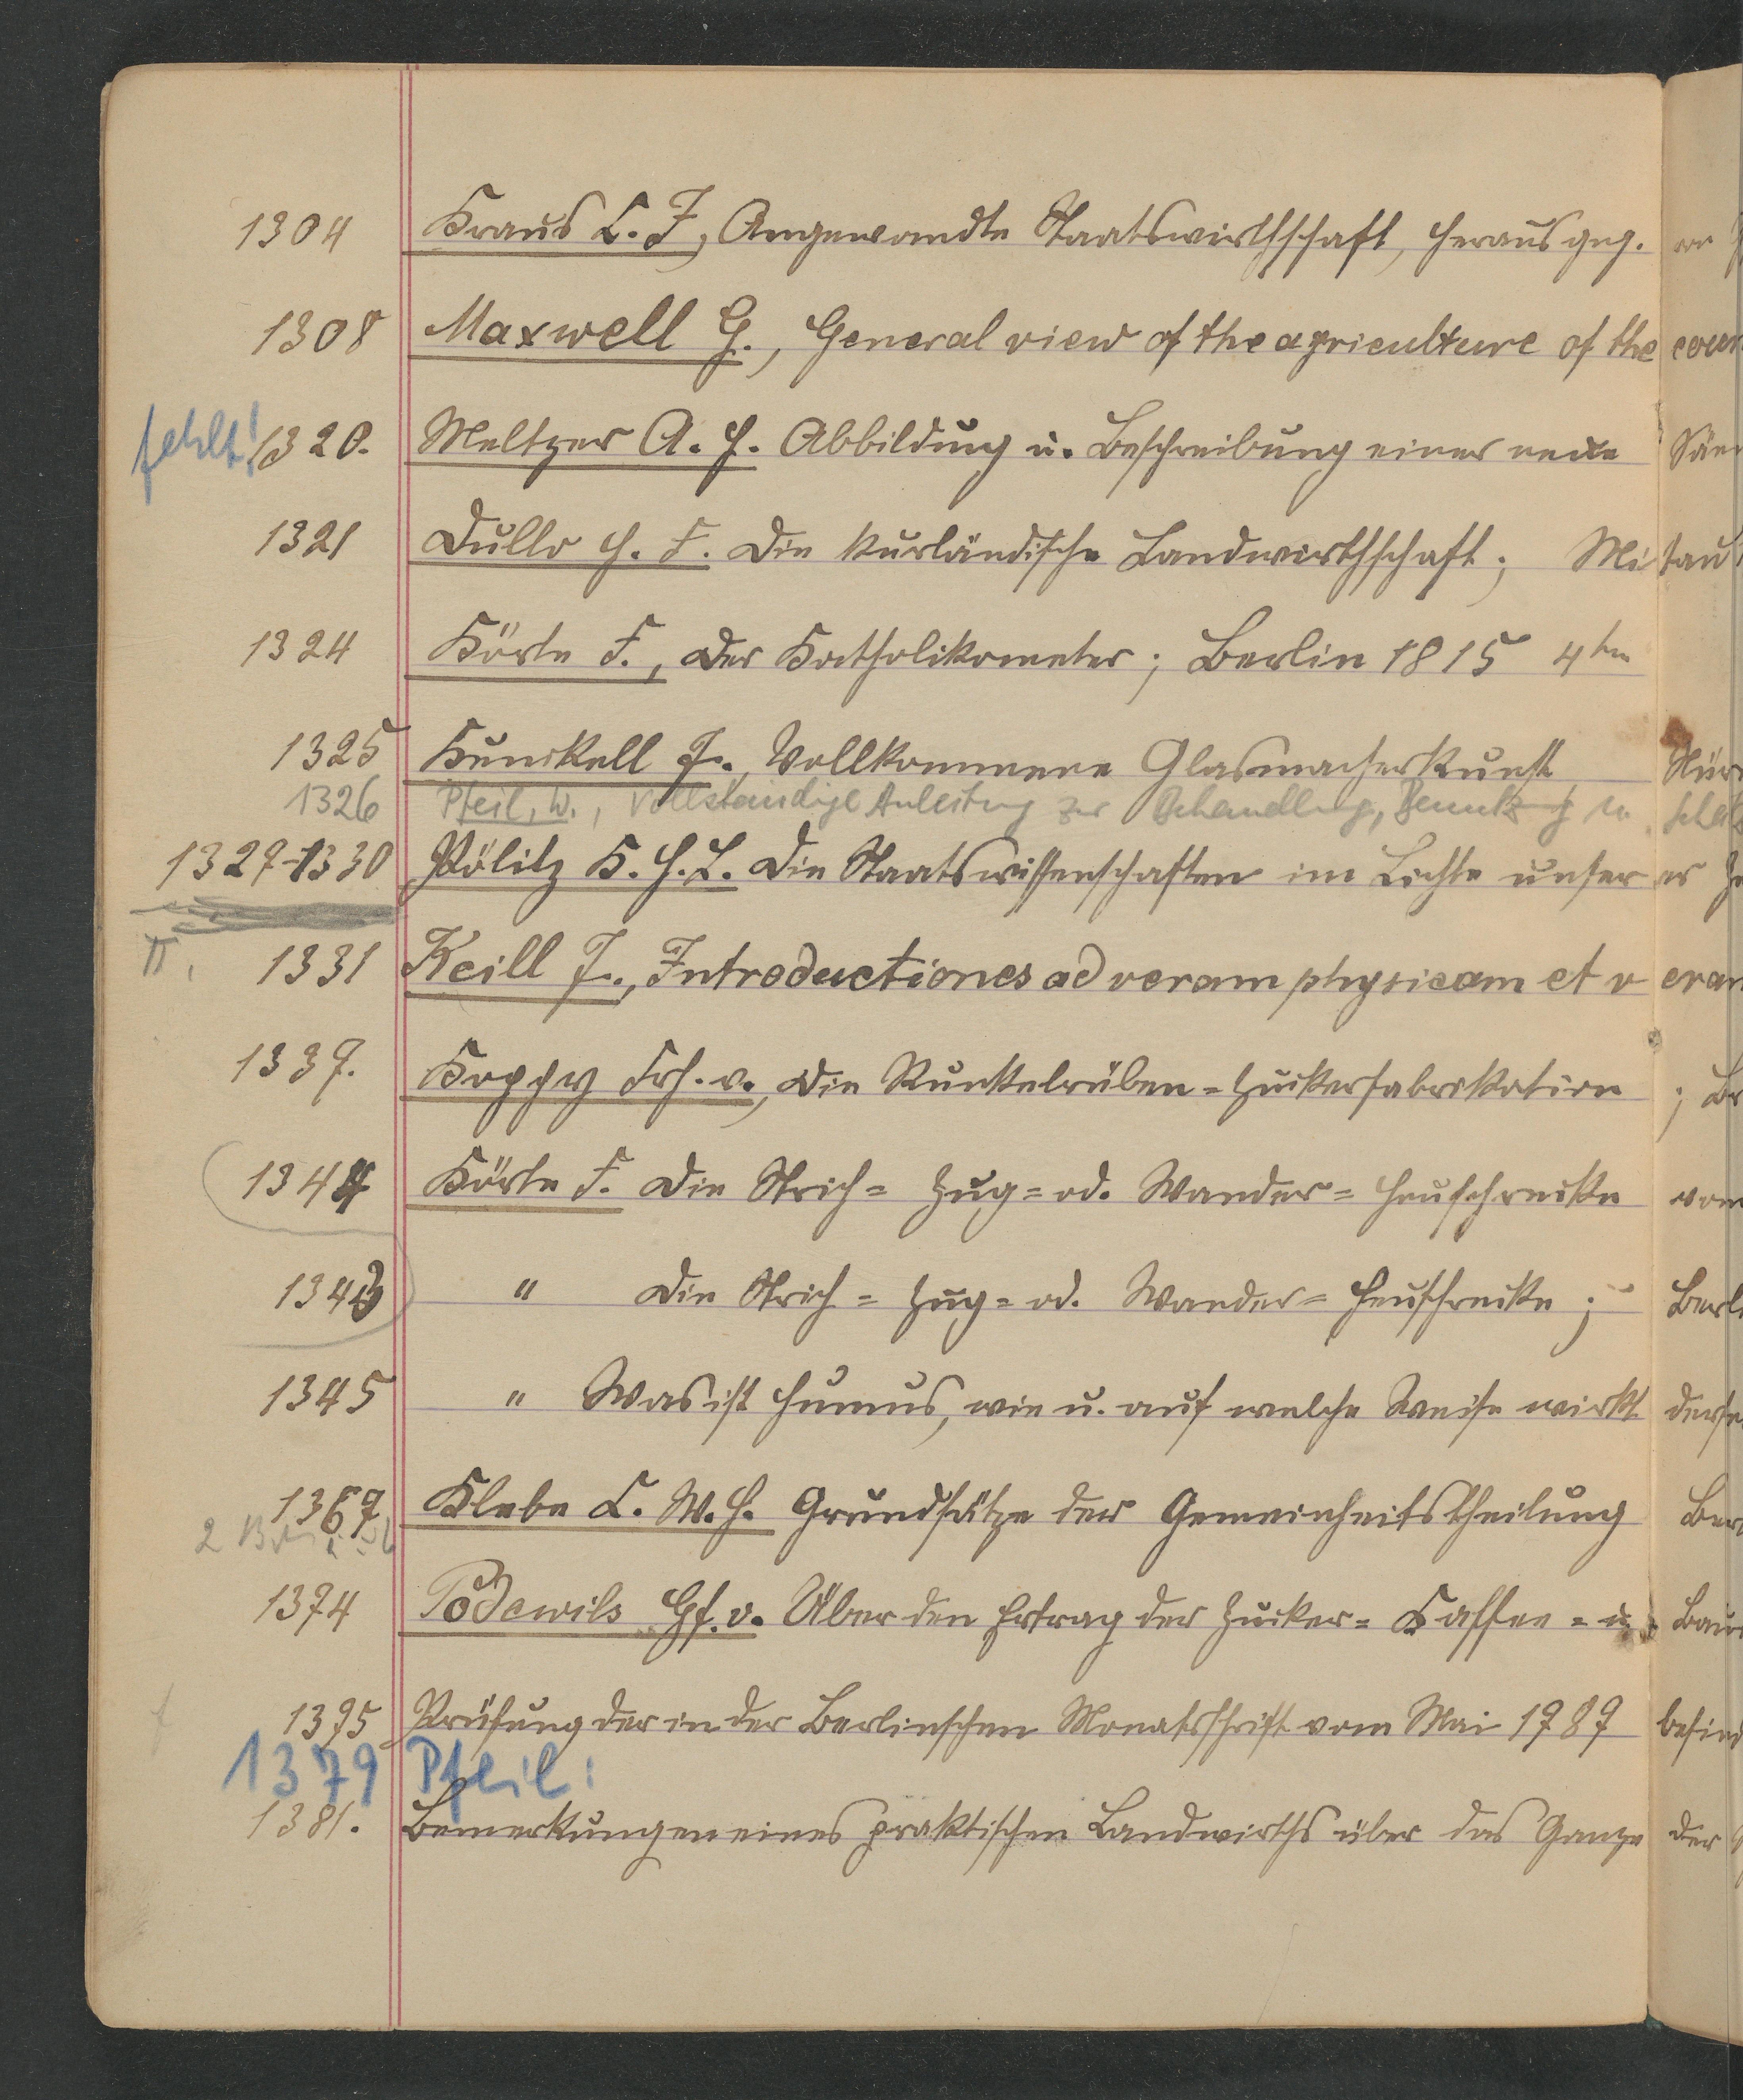 1304 Kraus C. J., Angewandte Staatswirthschaft, herausgeg. vo
1308 Maxwell G., General view of the agriculture of the coun
fehlt! 1320. Meltzer A. H. Abbildung u. Beschreibung einer neue Säe
1321 Dullo H. F. Die kurländische Landwirthschaft; Mitau
1324 Körte F., Der Katholikometer; Berlin 1815 4ten
1325 Kunkell J., Vollkommene Glasmacherkunst Nür
1326 Pfeil, W., Vollständige Anleitung zur Behandlung, Benutzung u. Schätz
1327-1330 Pölitz K. H. L. Die Staatswissenschaften im Lichte unserer Ze
II. 1331 Keill J., Introductiones ad veram physicam et veram
1337. Koppy Frh. v., Die Runkelrüben-Zuckerfabrikation ; Br
1344 Körte F. Die Strich- Zug- od. Wander- Heuschrecke von
1343 " Die Strich- Zug- od. Wander- Heuschrecke; Berli
1345 " Was ist Humus, wie u. auf welche Weise wirkt derse
1367 Klebe C. W. H. Grundsätze der Gemeinheitstheilung Ber
2
1374 Podewils Gf. v. Über den Ertrag der Zucker- Kaffee- u. Bau
1375 Prüfung der in der Berlinschen Monatsschrift vom Mai 1787 befind
1379 Pfeil:
1381. Bemerkungen eines praktischen Landwirths über das Ganze der